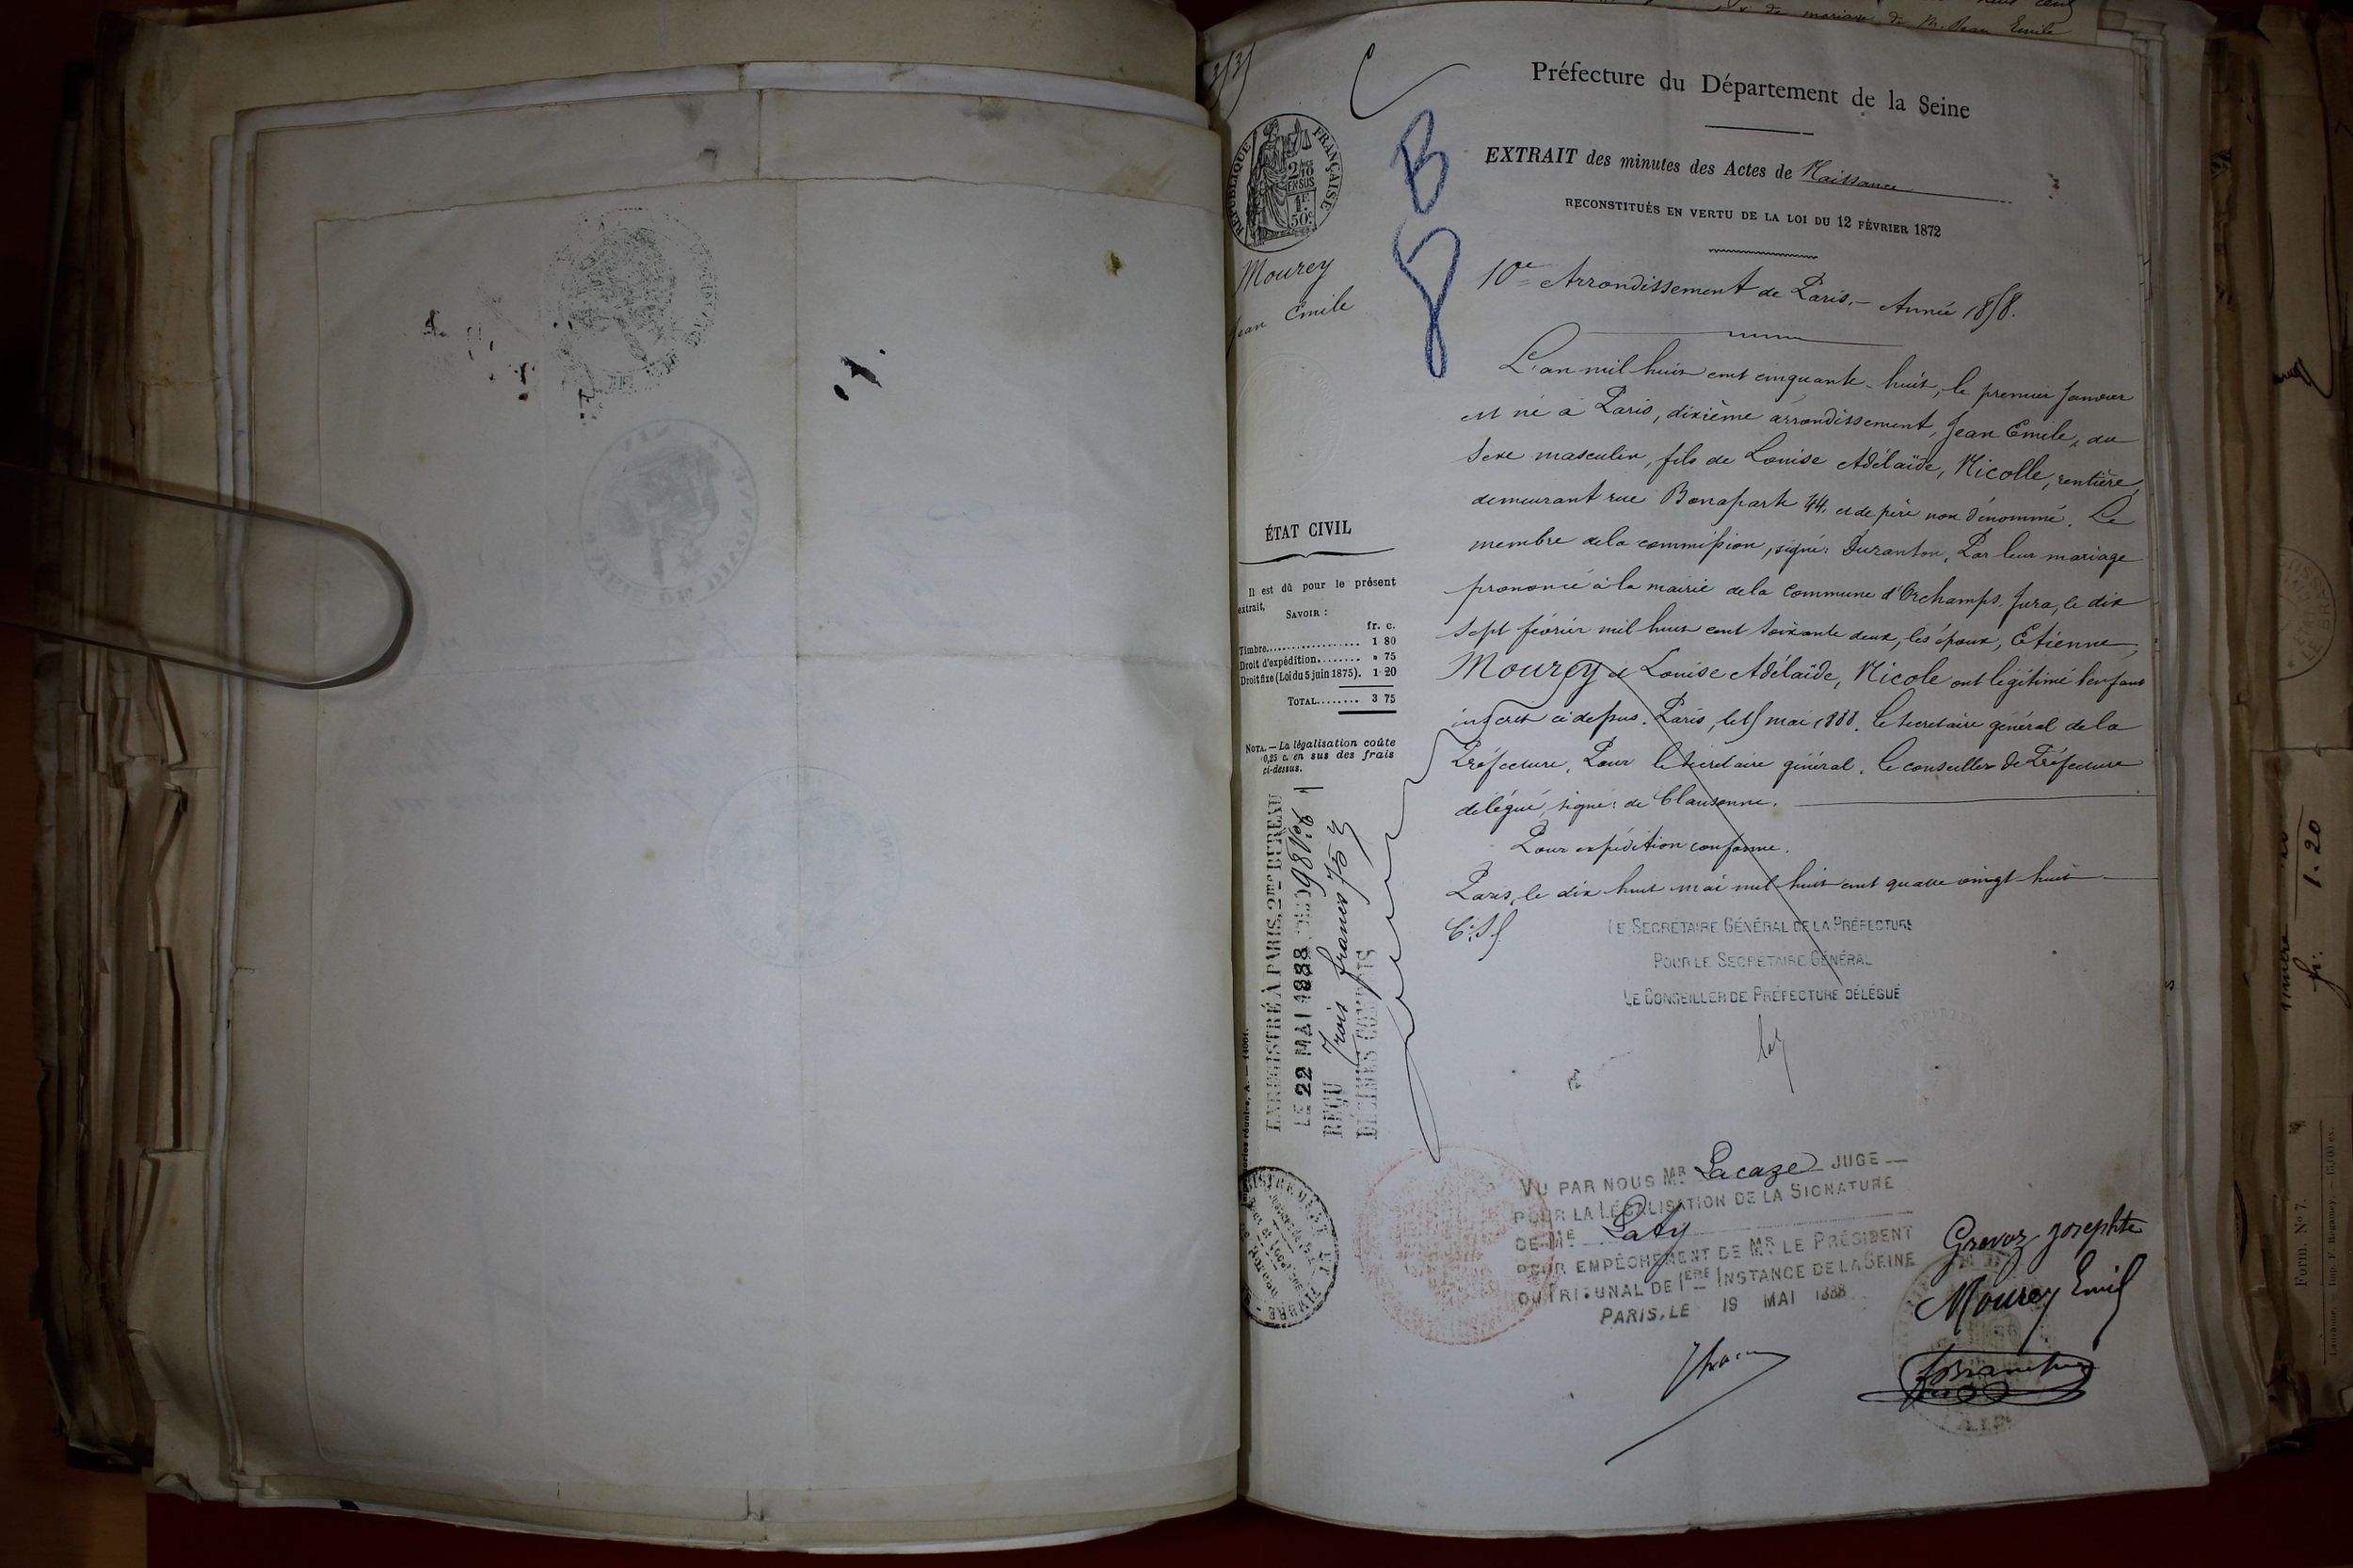 de mariage de Mr. Jean Emile
Préfecture du Département de la Seine
EXTRAIT des minutes des Actes de Naissance
RECONSTITUÉS EN VERTU DE LA LOI DU 12 FÉVRIER 1872
RÉPUBLIQUE FRANÇAISE
2/10 EN SUS
1F 50c
Mourey
Jean Emile
B
10e Arrondissement de Paris. – Année 1858.
L'an mil huit cent cinquante-huit, le premier Janvier
est né à Paris, dixième arrondissement, Jean Emile, du
sexe masculin, fils de Louise Adélaïde, Nicolle, rentière,
demeurant rue Bonaparte 44, et de père non dénommé. Le
membre de la commission, signé: Duranton. Par leur mariage
prononcé à la mairie de la commune d'Orchamps, Jura, le dix
sept février mil huit cent soixante deux, les époux, Etienne,
Mourey et Louise Adélaïde, Nicole ont légitimé l'enfant
inscrit ci dessus. Paris, le 15 mai 1888. Le secrétaire général de la
Préfecture, Pour le secrétaire général, Le conseiller de Préfecture
délégué, signé: de Clausonne.
Pour expédition conforme.
Paris, le dix huit mai mil huit cent quatre vingt huit
LE SECRÉTAIRE GÉNÉRAL DE LA PRÉFECTURE
POUR LE SECRÉTAIRE GÉNÉRAL
LE CONSEILLER DE PRÉFECTURE DÉLÉGUÉ
ÉTAT CIVIL
Il est dû pour le présent
extrait,
SAVOIR :
fr. c.
Timbre.................. 1 80
Droit d'expédition........ » 75
Droit fixe (Loi du 5 juin 1875). 1 20
TOTAL........ 3 75
NOTA. — La légalisation coûte
0,25 c. en sus des frais
ci-dessus.
ENREGISTRÉ À PARIS, 2me BUREAU
LE 22 MAI 1888
REÇU Trois francs 75 c
DÉCIMES COMPRIS
VU PAR NOUS MR. Lacaze JUGE
POUR LA LÉGALISATION DE LA SIGNATURE
DE ME Laty
POUR EMPÊCHEMENT DE MR. LE PRÉSIDENT
DU TRIBUNAL DE 1ÈRE INSTANCE DE LA SEINE
PARIS, LE 19 MAI 1888
Mourey Emil
1.20
fr.
Form. No 7.